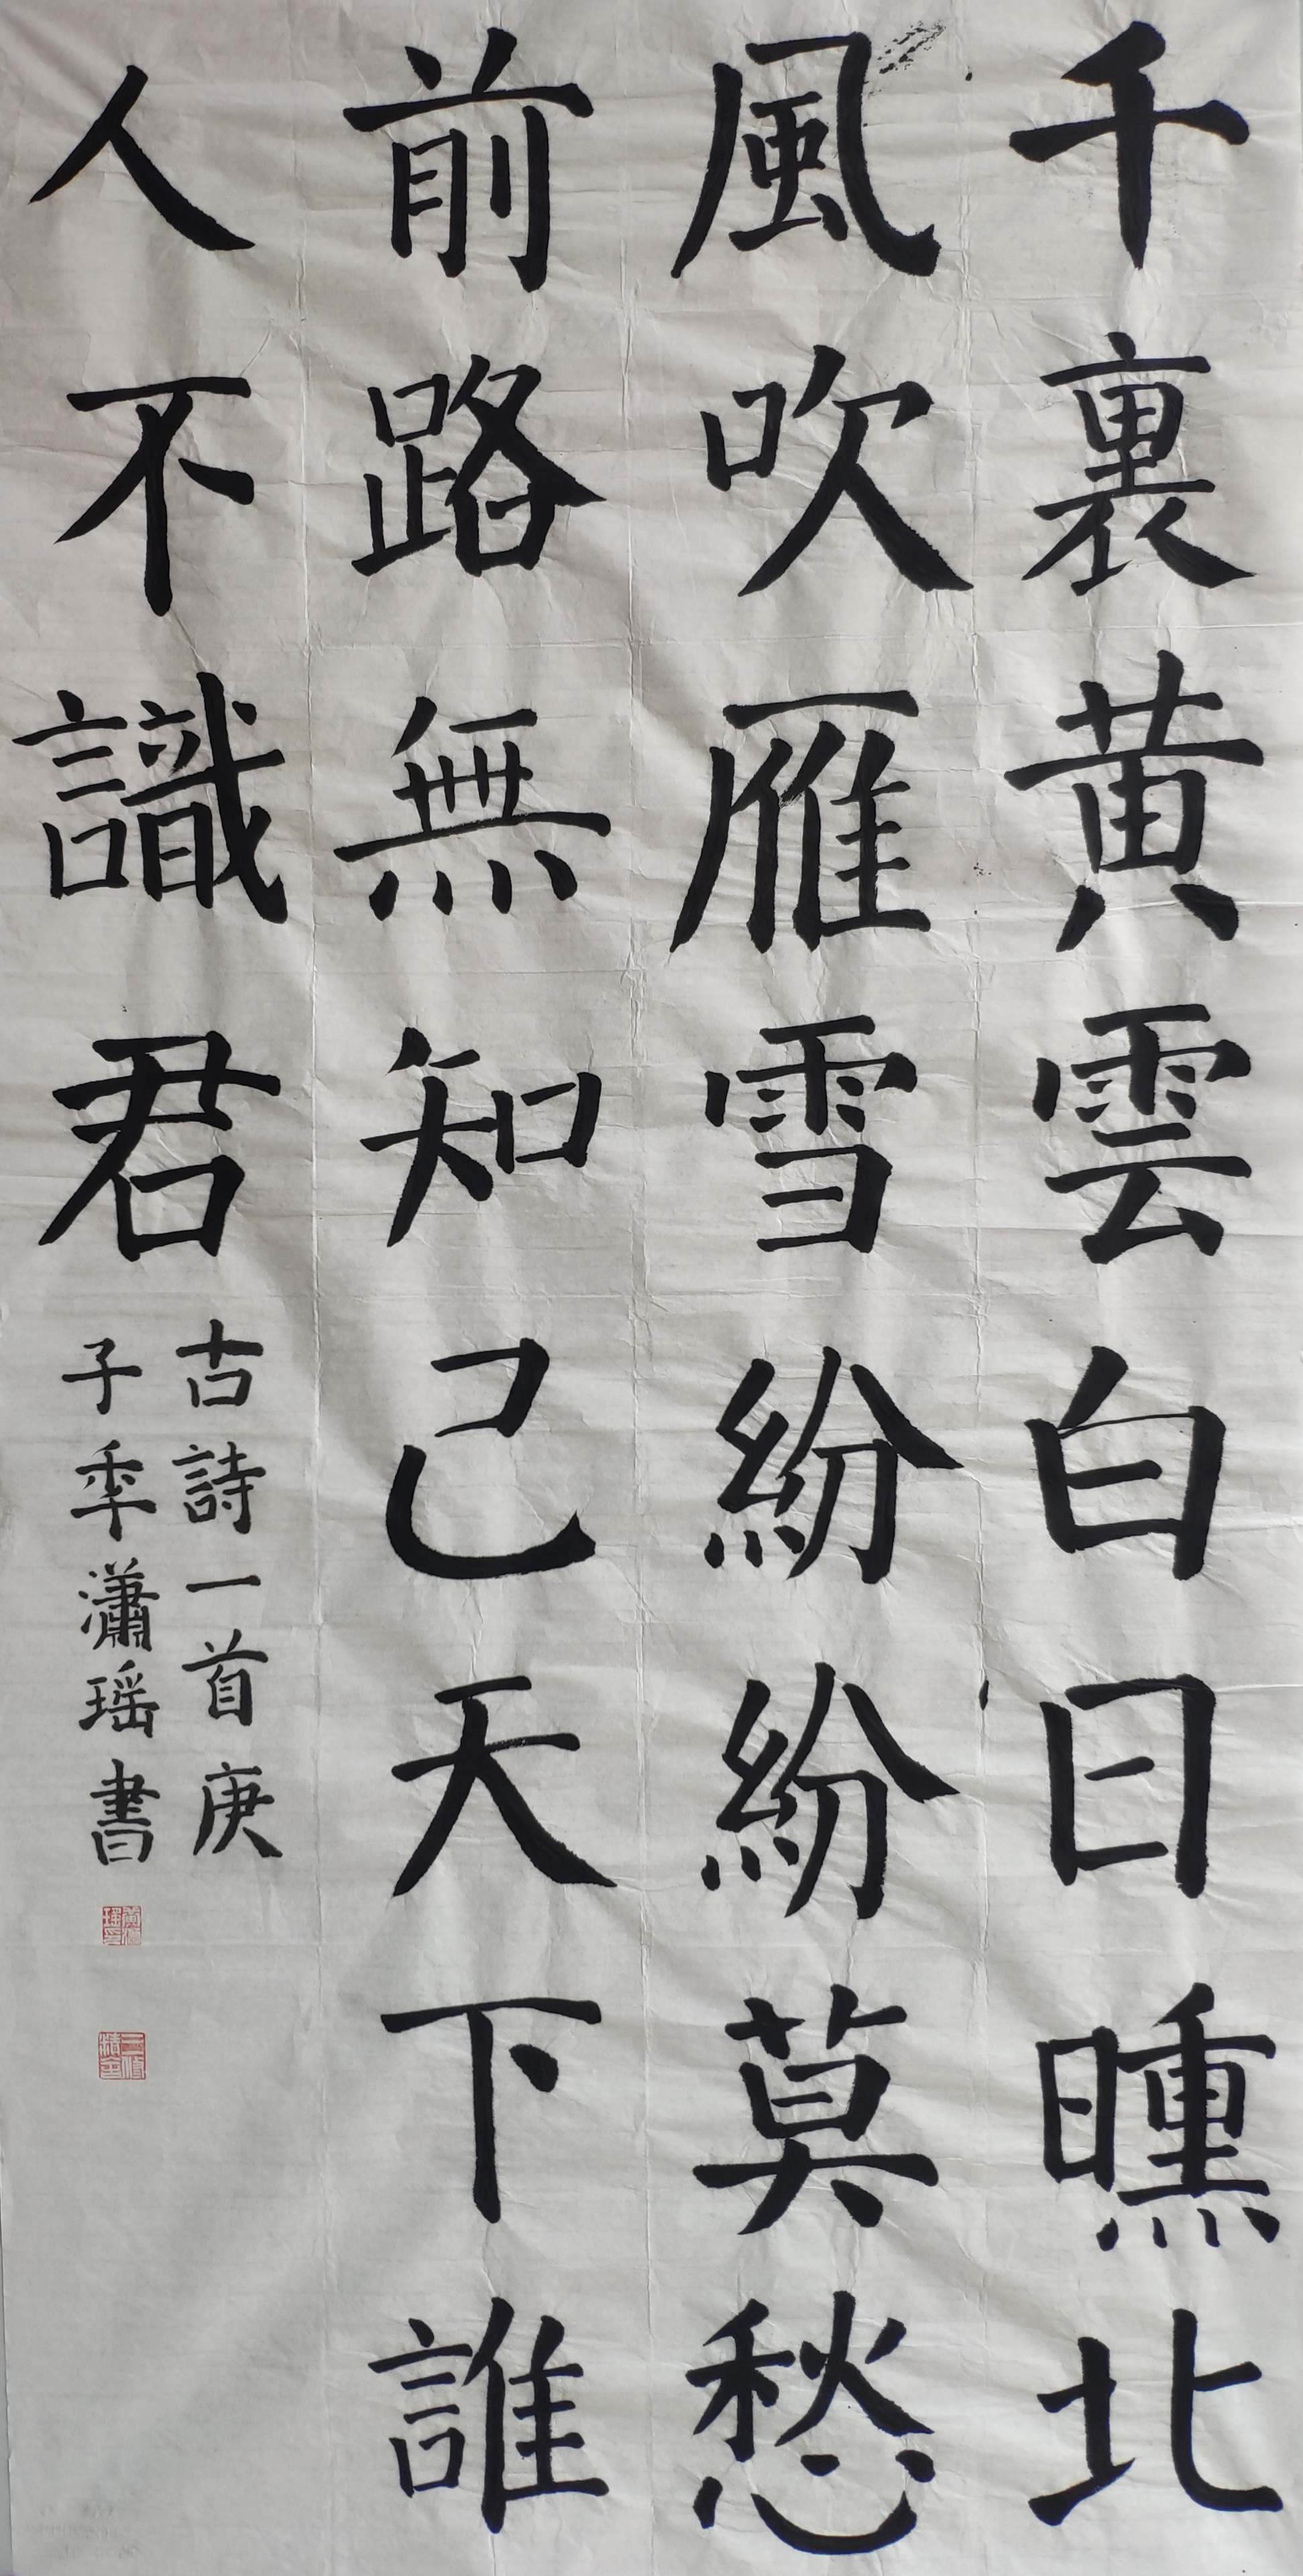 千裏黄雲白日曛北
風吹雁雪紛紛莫愁
前路無知己天下誰
人不識君
古詩一首庚
子季瀟瑶書